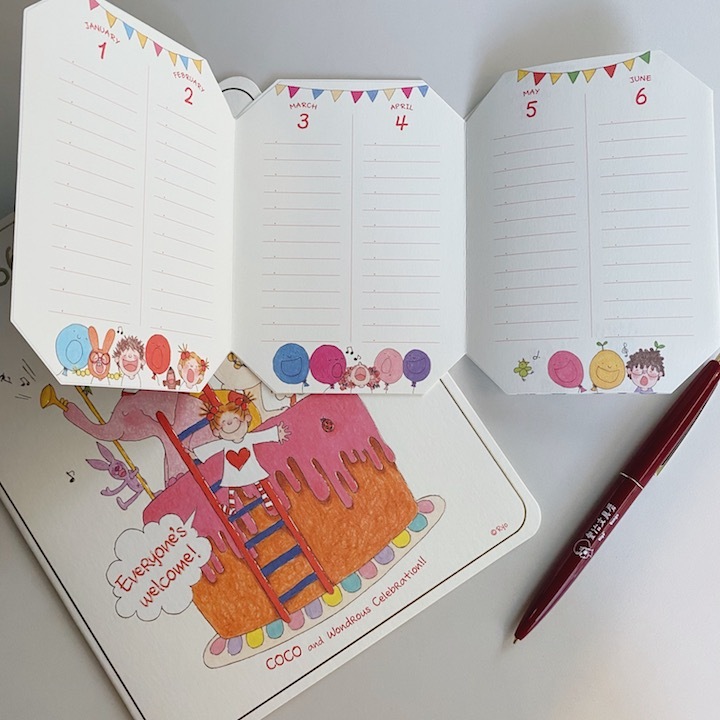 JANUARY
1
FEBRUARY
2
MARCH
3
APRIL
4
MAY
5
JUNE
6
Everyone's
welcome!
© Ryo
COCO and Wondrous Celebration!!